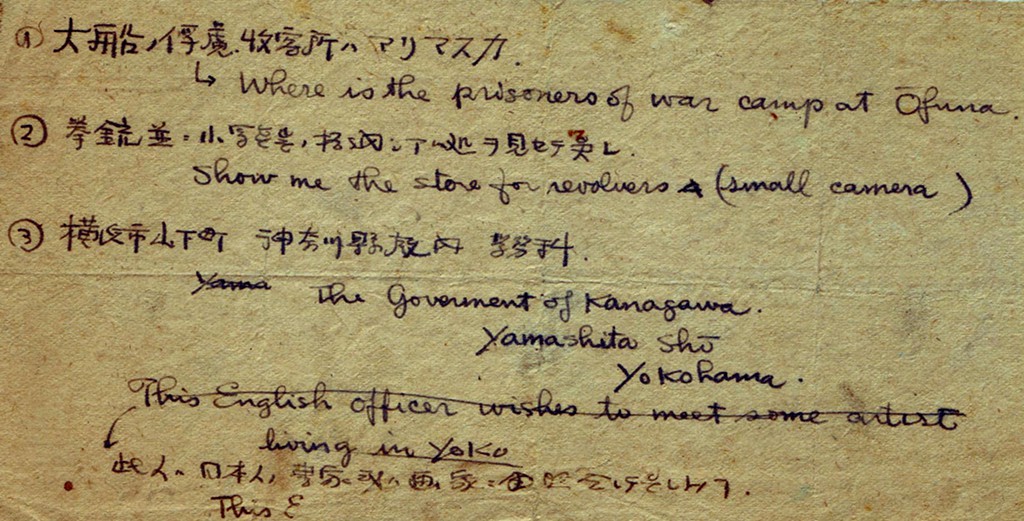 ① 大船ノ俘虜収容所ハアリマスカ.
↳ Where is the prisoners of war camp at Ōfuna.
② 拳銃並ニ小写真 ヲ見セテ呉レ.
Show me the store for revolvers (small camera)
③ 横浜市山下町 神奈川縣庁内
Yama The Goverment of Kanagawa.
Yamashita Shō
Yokohama.
This English officer wishes to meet some artist
living in Yoko
此人ハ日本人ノ 画家ニ
This E